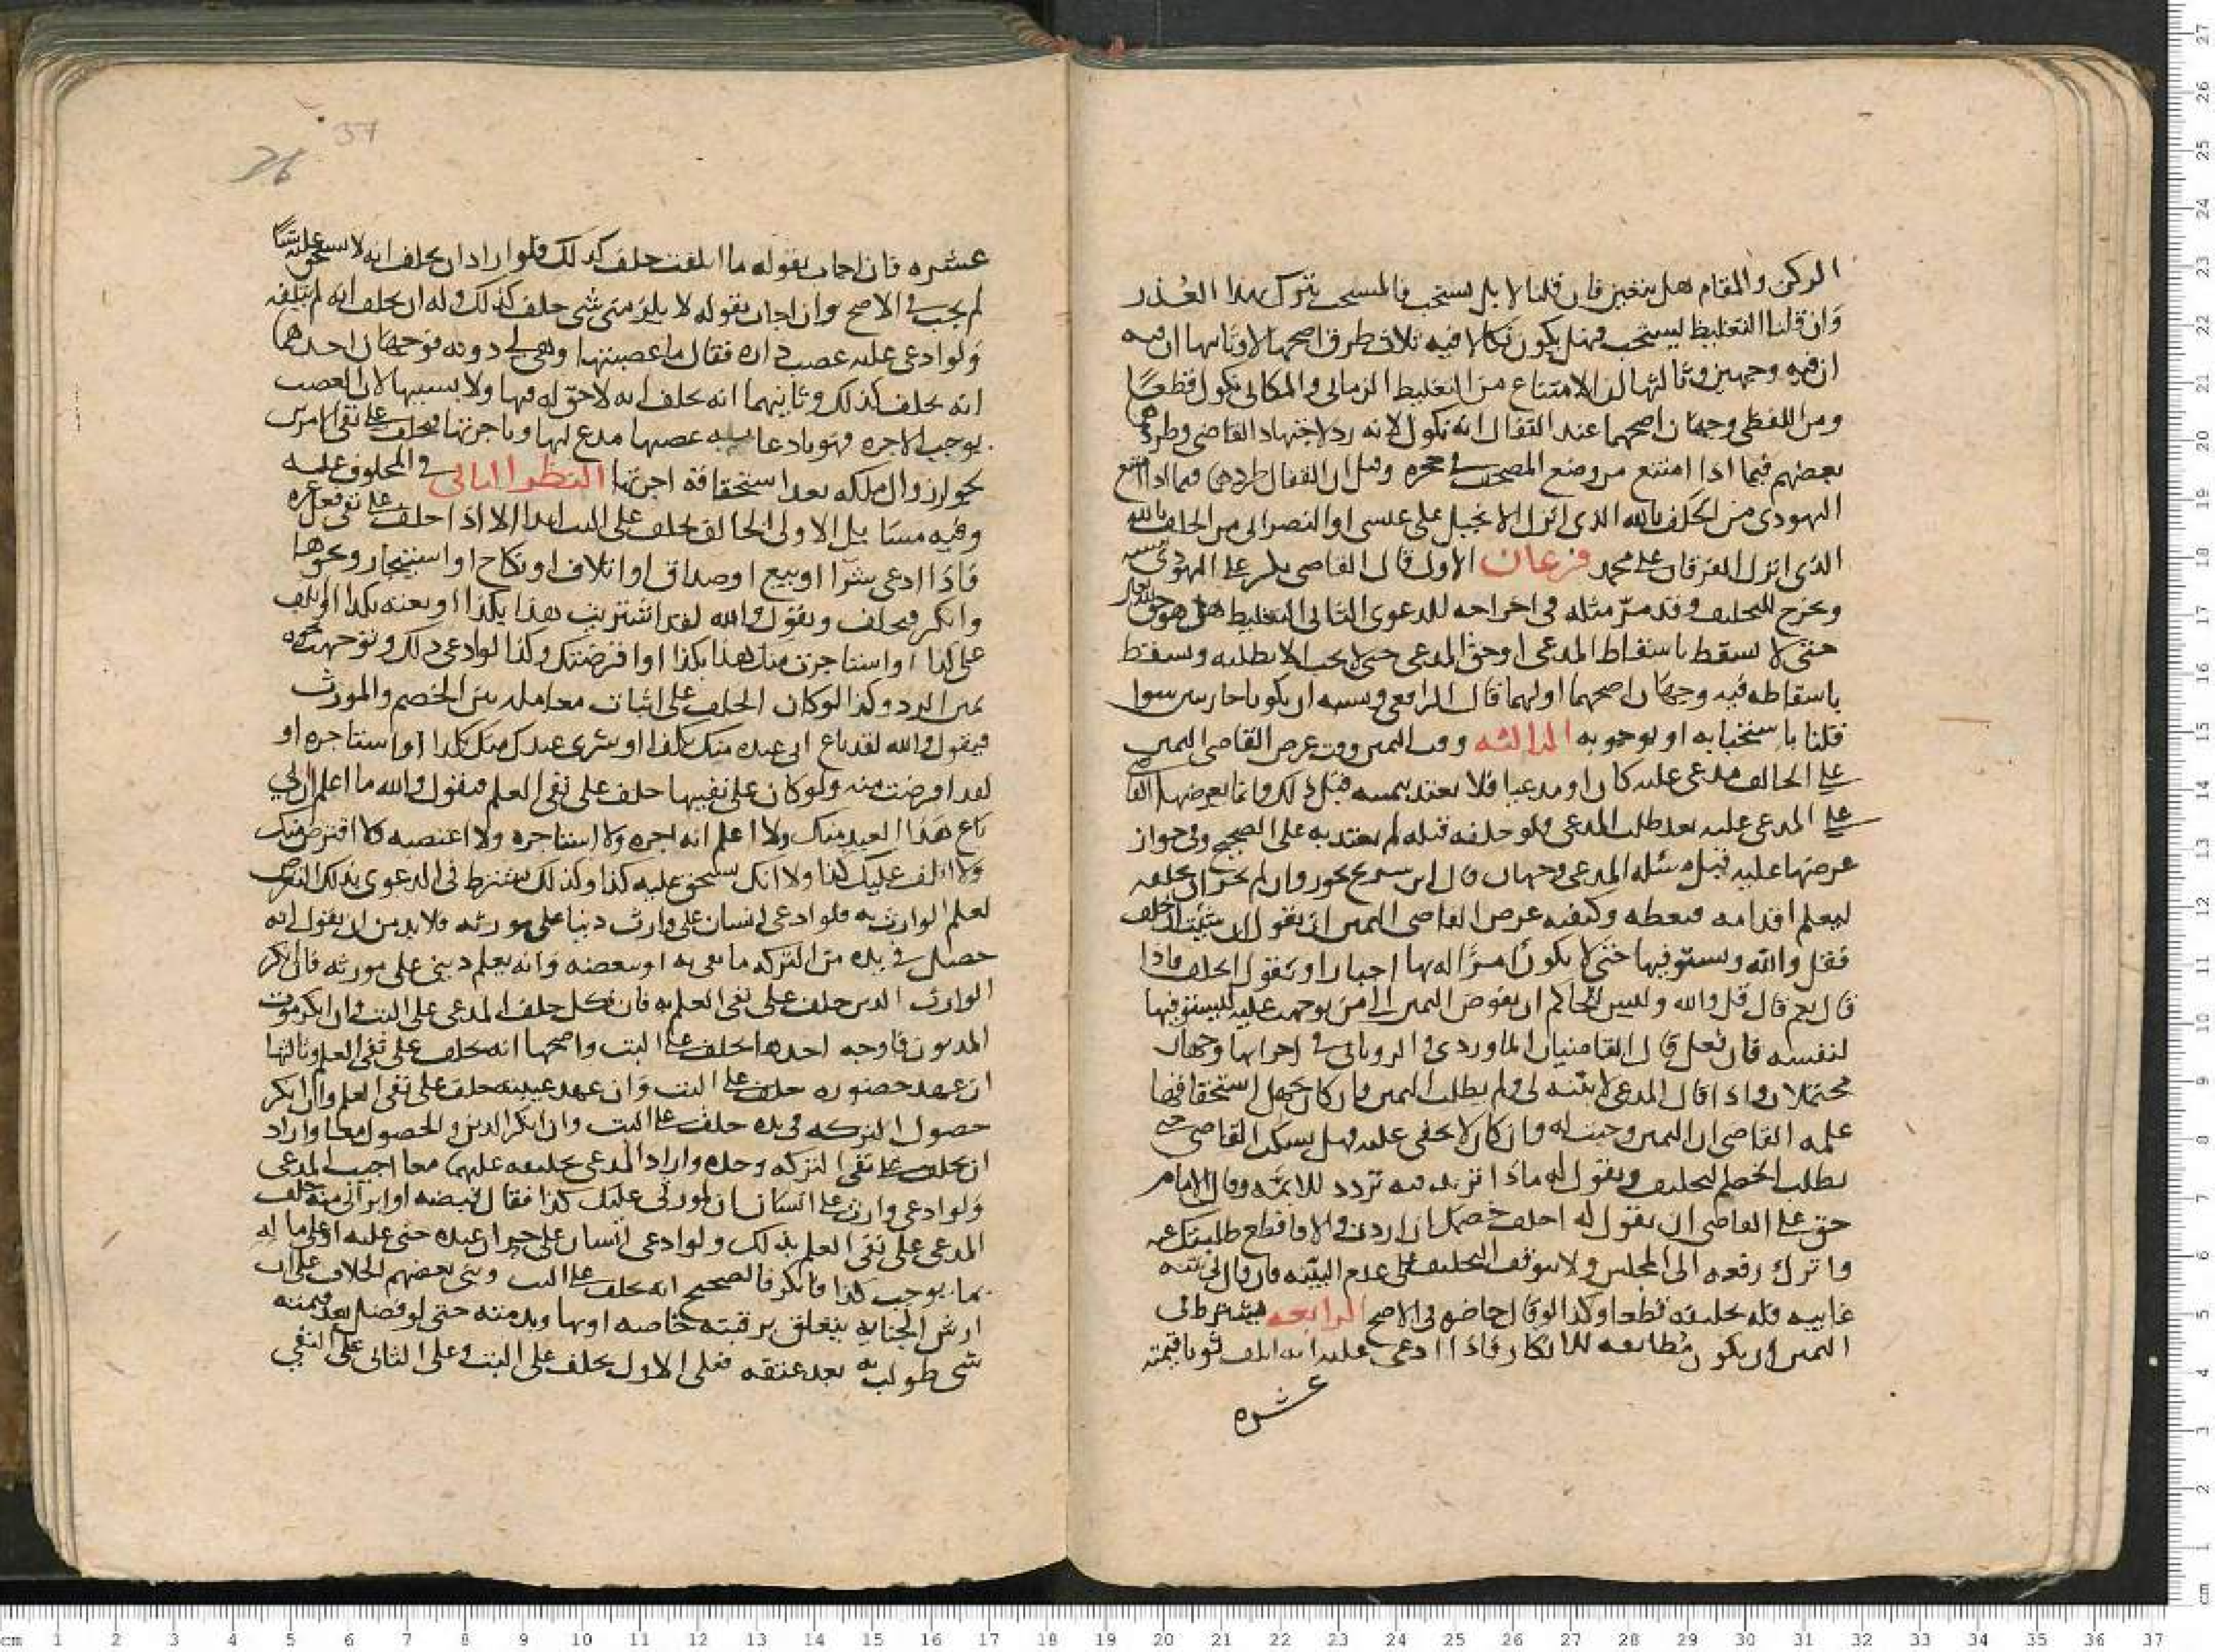 الركن والمقام هل ينخبز فان قلنا لا بل يستحب فالمستحب يترك بهذا العذر
وان قلنا التغليظ ليستحب فهل يكون نكالا فيه ثلاث طرق اصحها لا وثانيها ان فيه
ان فيه وجهين وثالثها ان الامتناع من التغليظ الزماني والمكاني نكول قطعا
ومن اللفظي وجهان اصحهما عند القفال انه نكول لانه رد لاجتهاد القاضي وطردهما
بعضهم فيما اذا امتنع من وضع المصحف في حجره وقيل ان القفال طردهما فيما اذا امتنع
اليهودي من الحلف بالله الذي انزل الانجيل على عيسى او النصراني من الحلف بالله
الذي انزل الفرقان على محمد فرعان الاول قال القاضي
ويخرج للتحليف وقد مر مثله في اخراجه للدعوى الثاني التغليظ هل هو حق لله تعالى
حتى لا يسقط باسقاط المدعى او حق المدعي حتى لا يجب الا بطلبه ويسقط
باسقاطه فيه وجهان اصحهما اولهما قال الرافعي ويشبه ان يكونا جاريين سوا
قلنا باستحبابه او بوجوبه الثالثة وقت اليمين وقت عرض القاضي اليمين
على الحالف مدعى عليه كان او مدعيا فلا يعتد بيمينه قبل ذلك وانما يعرضها القاضي
على المدعى عليه بعد طلب المدعي فلو حلفه قبله لم يعتد به على الصحيح وفي جواز
عرضها عليه قبل مسئله المدعي وجهان قال ابن سريج يجوز وان لم يجز ان يحلفه
ليعلم اقدامه فيعظه وكيفيه عرض القاضي اليمين ان يقول ان شئت ان تحلف
فقل والله ويستوفيها حتى لا يكون امرا له بها اجبارا او يقول احلف فاذا
قال نعم قال قل والله وليس للحاكم ان يفوض اليمين الى من توجهت عليه ليستوفيها
لنفسه فان فعل قال القاضيان الماوردي والروياني في اجزائها وجهان
محتملان واذا قال المدعي لا بينه لي ولم يطلب اليمين فان كان يجهل استحقاقها
علمه القاضي ان اليمين وجبت له وان كان لا يخفى عليه فهل يسكت القاضي حتى
يطلب الخصم التحليف ويقول له ماذا تريد فيه تردد للائمه وقال الامام
حق على القاضي ان يقول له احلف خصمك ان اردت والا فاقطع طلبتك عنه
واترك رفعه الى المجلس ولا يتوقف التحليف على عدم البينه فان قال لي بينه
غايبه فله تحليفه قطعا وكذا لو قال حاضره في الاصح الرابعه يشترط في
اليمين ان يكون مطابقه للانكار فاذا ادعى عليه انه اتلف ثوبا قيمته
عشره
عشره فان اجاب بقوله ما اتلفت حلف كذلك فلو اراد ان يحلف انه لا يستحق عليه شيئا
لم يجب في الاصح وان اجاب بقوله لا يلزمني شي حلف كذلك وله ان يحلف انه لم يتلفه
ولو ادعى عليه غصب داره فقال ما غصبتها وهي لي دونه فوجهان احدهما
انه يحلف كذلك وثانيهما انه يحلف انه لا حق له فيها ولا بسببها لان الغصب
يوجب الاجره فهو بادعا غصبها مدع لها وباجرتها فيحلف على نفي امرين
بجواز زوال ملكه بعد استحقاقه اجرتها النظر الثاني في المحلوف عليه
وفيه مسايل الاولى الحالف يحلف على البت ابدا الا اذا حلف على نفي فعل غيره
فاذا ادعى شرا او بيع او صداق او اتلاف او نكاح او استيجار ونحوها
وانكر فيحلف ويقول والله لقد اشتريت هذا بكذا او بعته بكذا او اتلف
على كذا او استاجرت منك هذا بكذا او اقرضتك وكذا لو ادعى ذلك وتوجهت عليه
يمين الرد وكذا لو كان الحلف على اثبات معامله بين الخصم والمورث
فيقول والله لقد باع ابي عبده منك بالف او شرى عبدك منك بكذا او استاجره او
لقد اقرضت منه ولو كان على نفيها حلف على نفي العلم فيقول والله ما اعلم ان ابي
باع هذا العبد منك ولا اعلم انه اجره ولا استاجره ولا اغتصبه ولا اقترض منك
ولا اتلف عليك كذا ولا انك تستحق عليه كذا وكذلك يشترط في الدعوى بذلك التعرض
لعلم الوارث به فلو ادعى انسان على وارث دينا على مورثه فلا بد من ان يقول انه
حصل في يده من التركه ما يفي به او ببعضه وانه يعلم ديني على مورثه فان انكر
الوارث الدين حلف على نفي العلم به فان نكل حلف المدعي على البت وان انكر موت
المديون فاوجه احدها يحلف على البت واصحها انه يحلف على نفي العلم وثالثها
ان عهد حضوره حلف على البت وان عهد غيبته حلف على نفي العلم وان انكر
حصول التركه في يده حلف على البت وان انكر الدين والحصول معا واراد
ان يحلف على نفي التركه وحده واراد المدعي تحليفه عليهما معا اجيب المدعي
ولو ادعى وارث على انسان ان لمورثي عليك كذا فقال قبضه او ابراني منه حلف
المدعي على نفي العلم بذلك ولو ادعى انسان على حر ان عبده جنى عليه او على ماله
بما يوجب كذا فانكر فالصحيح انه يحلف على البت وبنى بعضهم الخلاف على ان
ارش الجنايه يتعلق برقبته خاصه او بها وبذمته حتى لو فضل بعد قيمته
شي طولب به بعد عتقه فعلى الاول يحلف على البت وعلى الثاني على النفي